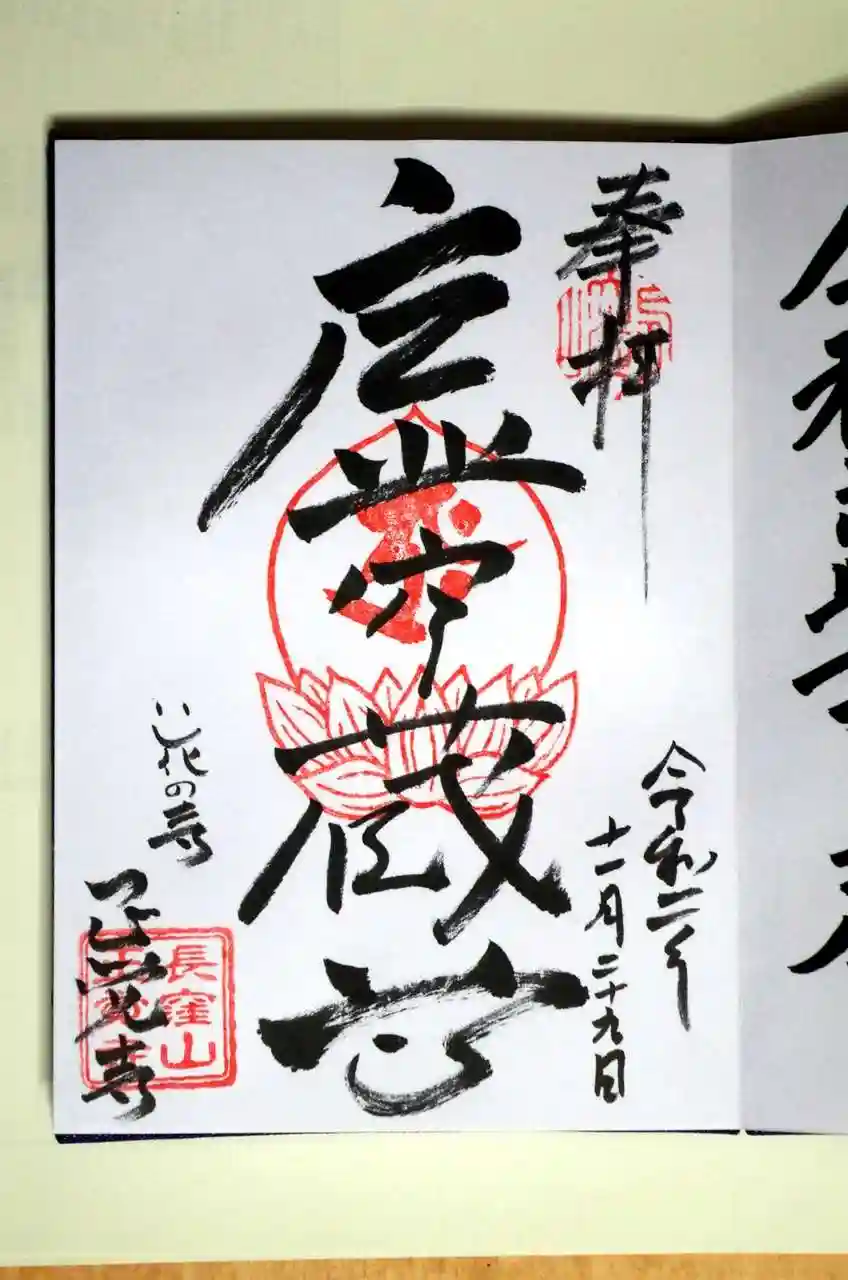 奉拝
令和二年
十一月二十九日
虚空蔵尊
花の寺
正覚寺
長窪山
正覚寺